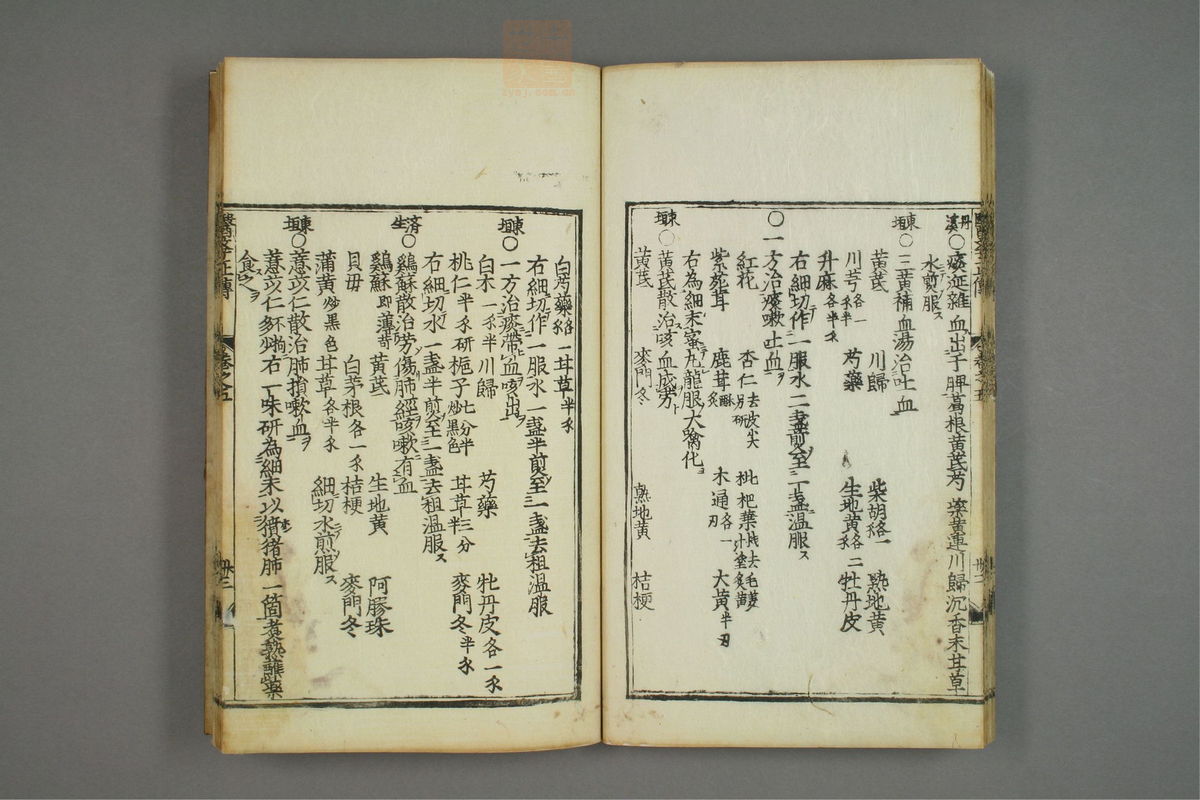 丹溪○痰涎雜血出于脾葛根黄芪芍藥黄連川歸沉香末甘草
水煎服ス
東垣○三黄補血湯治吐血
黄芪 川歸 柴胡 熟地黄
川芎各一 芍藥 生地黄 二 牡丹皮
升麻各半
右細切作一服水二盞煎至一盞温服ス
○一方治痰嗽止血
紅花 杏仁去皮尖 枇杷葉拭去毛
紫菀茸 鹿茸酥炙 木通各一 大黄半
右為細末蜜丸龍服大噙化
東垣○黄芪散治咳血成労
黄芪 麥門冬 熟地黄 桔梗
白芍藥 甘草半
東垣○一方治痰帶血咳出
右細切作一服水一盞半煎至一盞去租温服
白木一 半川歸 芍藥 牡丹皮各一
桃仁半 研梔子七分半炒黒色 甘草三分半 麥門冬半
右細切水一盞半煎至一盞去租温服ス
済生○鷄蘇散治労傷肺經咳嗽有血
鷄蘇即薄苛 黄芪 生地黄 阿膠珠
貝母 白茅根各一 桔梗 麥門冬
蒲黄炒黒色 甘草各半 細切水煎服ス
東垣○薏苡仁散治肺損嗽血ヲ
薏苡仁 右一味研為細末以 猪肺一箇煮熟蘸藥
食之ヲ
醫學正傳 卷之五 卅三